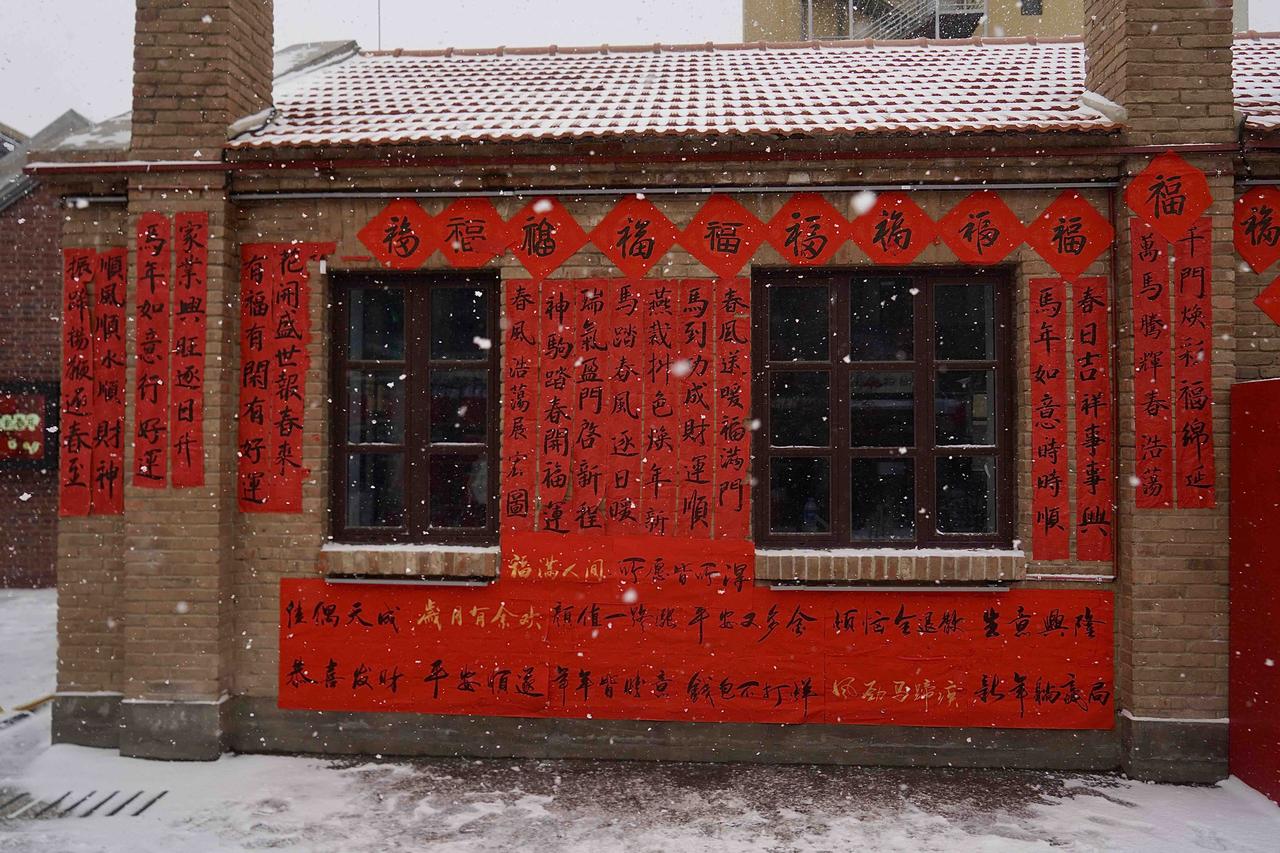 福
福
福 福 福 福 福 福 福 福 福
千門焕彩福綿延
萬馬騰輝春浩蕩
春日吉祥事事興
馬年如意時時順
春風送暖福滿門
馬到功成財運順
燕裁柳色焕年新
馬踏春風逐日暖
瑞氣盈門啓新程
神駒踏春開福運
春風浩蕩展宏圖
花開盛世報春來
有福有閑有好運
家業興旺逐日升
馬年如意行好運
順風順水順財神
振蹄揚鬃逐春至
福满人间 所愿皆所得
佳偶天成 歲月有余欢 颜值一路涨 平安又多金 烦恼全退散 生意興隆
恭喜发财 平安顺遂 年年皆胜意 钱包不打烊 风劲马蹄疾 新年躺赢局